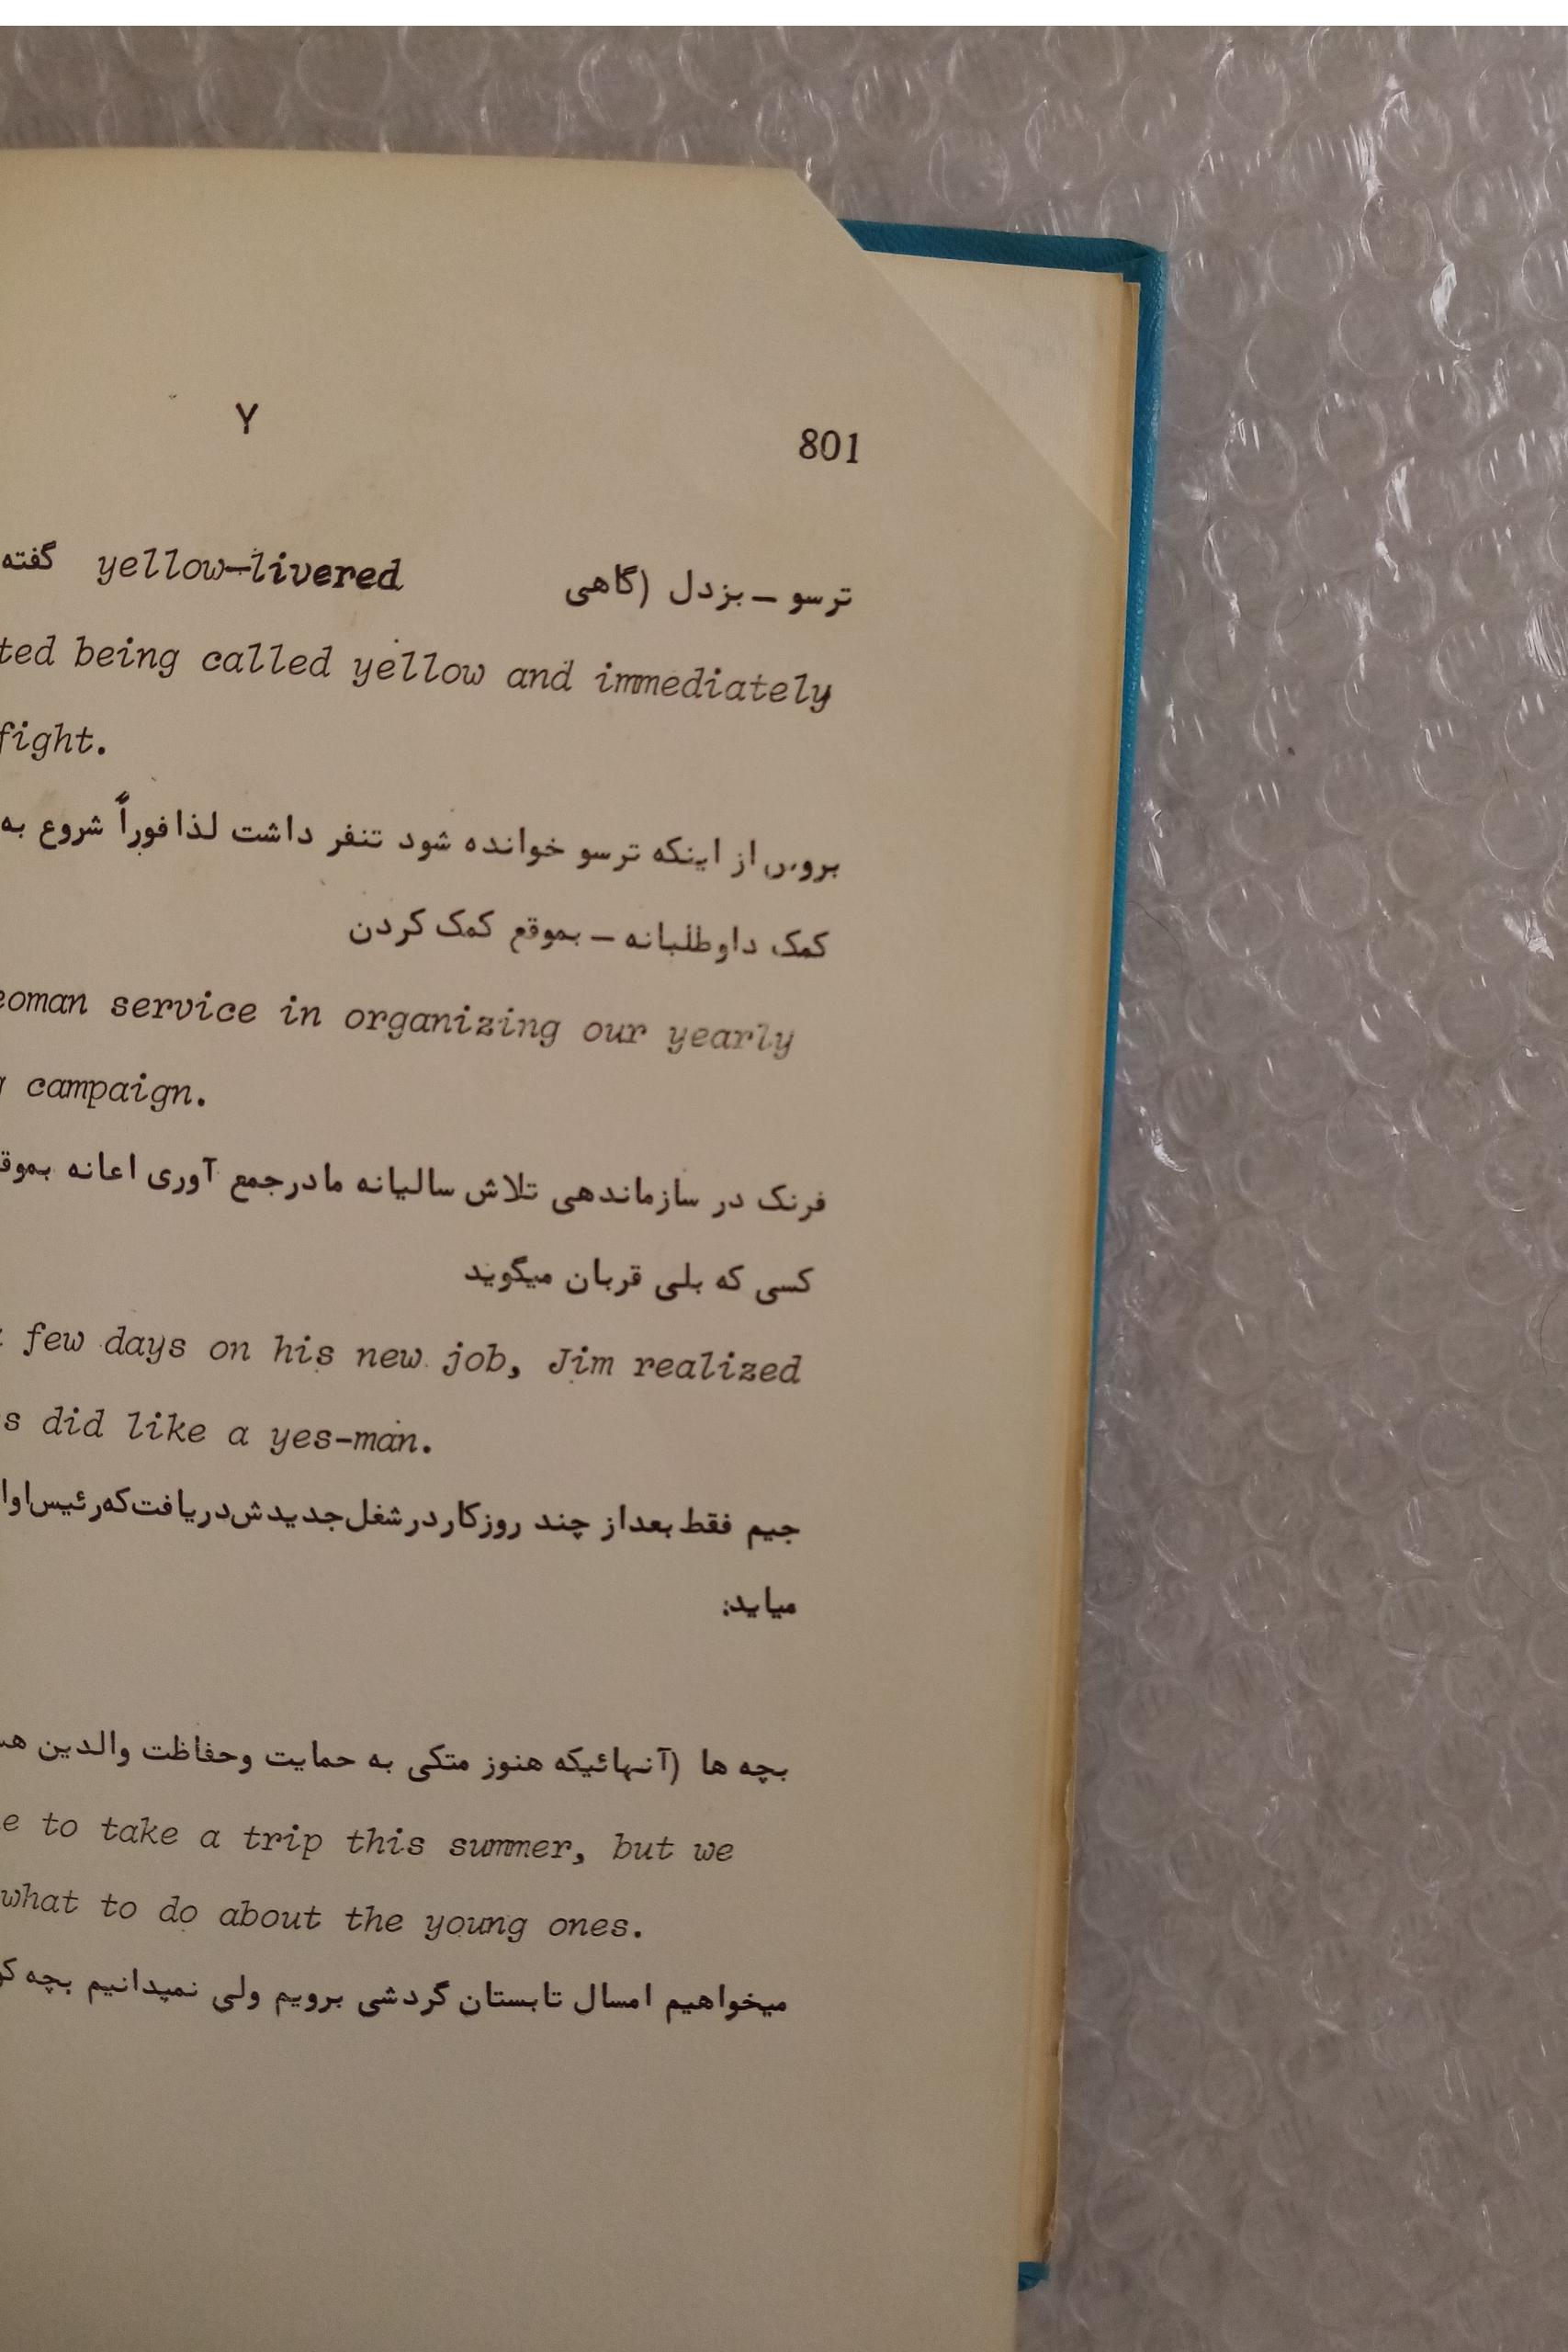 Y 801
ترسو – بزدل (گاهی yellow-livered گفته
being called yellow and immediately
fight.
از اینکه ترسو خوانده شود تنفر داشت لذا فوراً شروع به
کمک داوطلبانه – بموقع کمک کردن
service in organizing our yearly
campaign.
فرنک در سازماندهی تلاش سالیانه ما در جمع آوری اعانه
کسی که بلی قربان میگوید
few days on his new job, Jim realized
did like a yes-man.
جیم فقط بعد از چند روز کار در شغل جدیدش دریافت که رئیس او
میاید:
بچه ها (آنهائیکه هنوز متکی به حمایت وحفاظت والدین
to take a trip this summer, but we
what to do about the young ones.
میخواهیم امسال تابستان گردشی برویم ولی نمیدانیم بچه